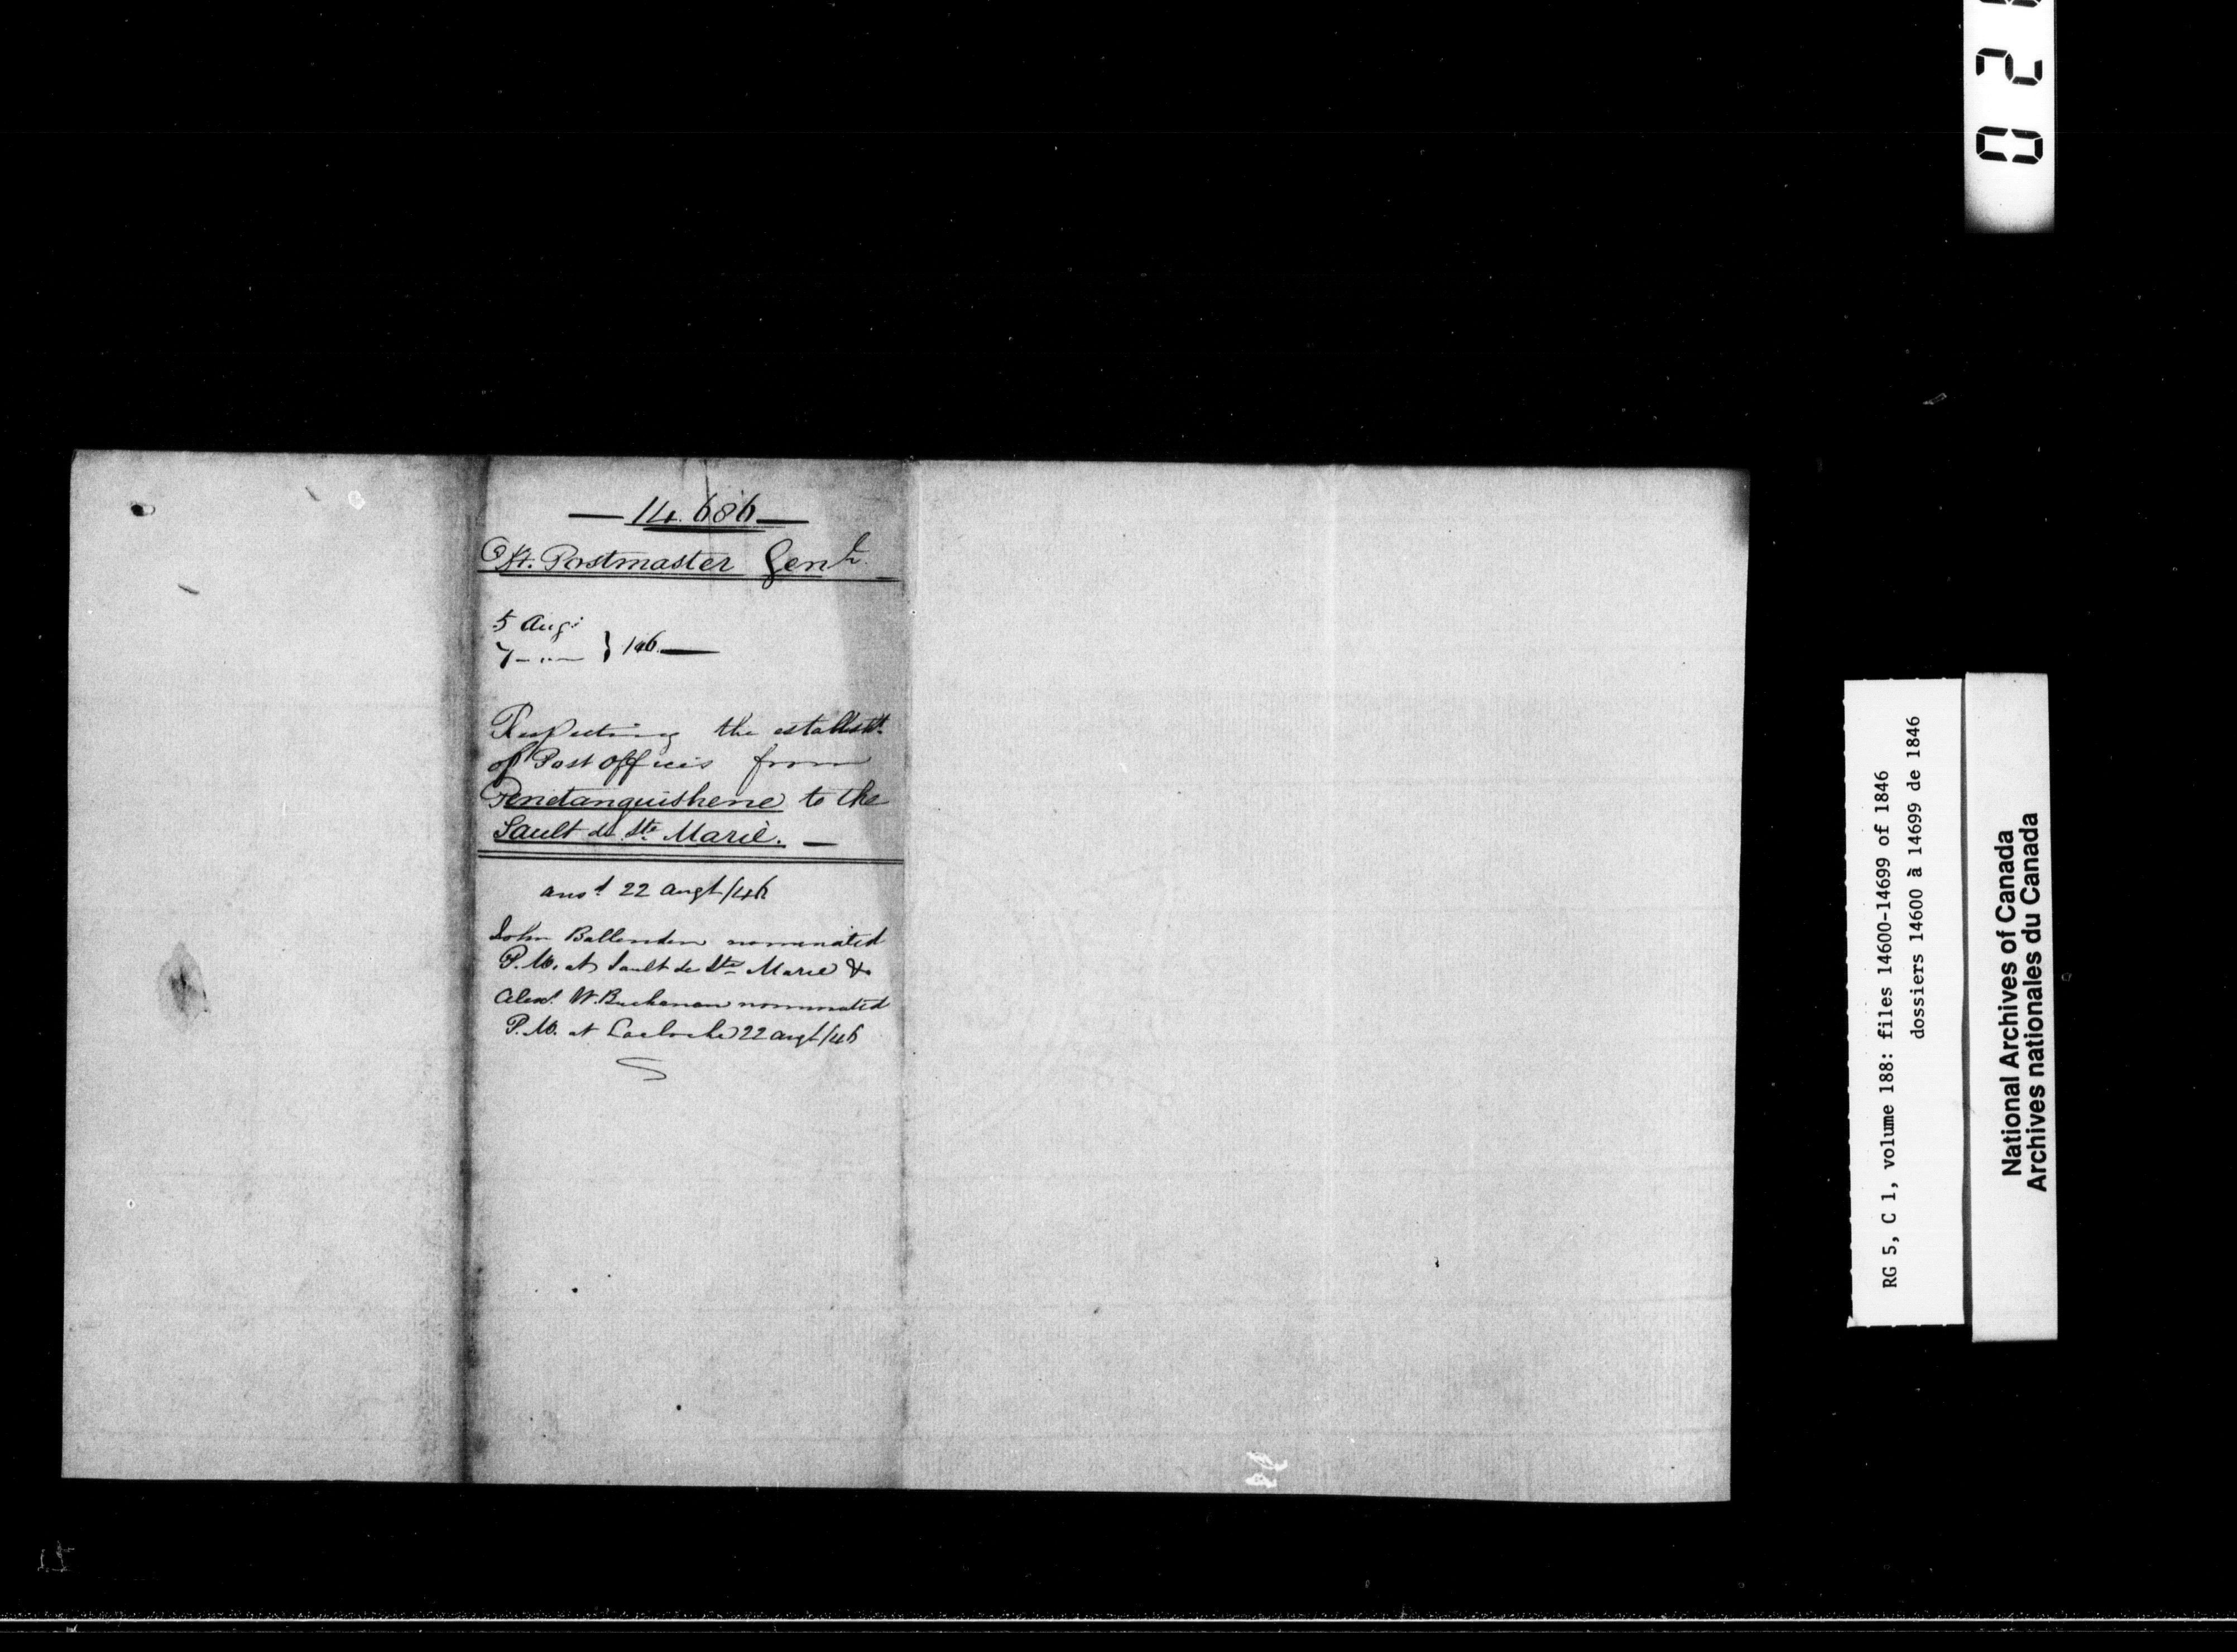 14.686
Dy. Postmaster Genl.
5 Augt
7 — " — } /46
Respecting the establisht.
of Post Offices from
Penetanguishene to the
Sault de Ste Marie.
ansd 22 Augt /46
John Ballenden nominated
P.M. at Sault de Ste Marie &
Alexr. W. Buchanan nominated
P.M. at Lacloche 22 Augt /46
RG 5, C 1, volume 188: files 14600-14699 of 1846
dossiers 14600 à 14699 de 1846
National Archives of Canada
Archives nationales du Canada
02